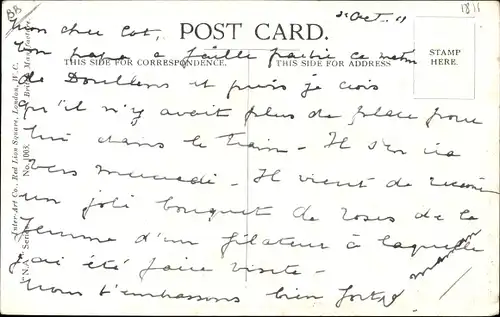 BB
2 Oct. 11
1811
Mon cher Cot,
POST CARD.
Ton papa a failli partir ce matin
THIS SIDE FOR CORRESPONDENCE.
THIS SIDE FOR ADDRESS
STAMP
HERE.
de Doullens et puis je crois
qu'il n'y avait plus de place pour
lui dans le train - Il s'en ira
vers mercredi - Il vient de recevoir
un joli bouquet de roses de la
femme d'un filateur à laquelle
j'ai été faire visite -
Nous t'embrassons bien fort
maman
Inter-Art Co., Red Lion Square, London, W.C.
No. 1003.